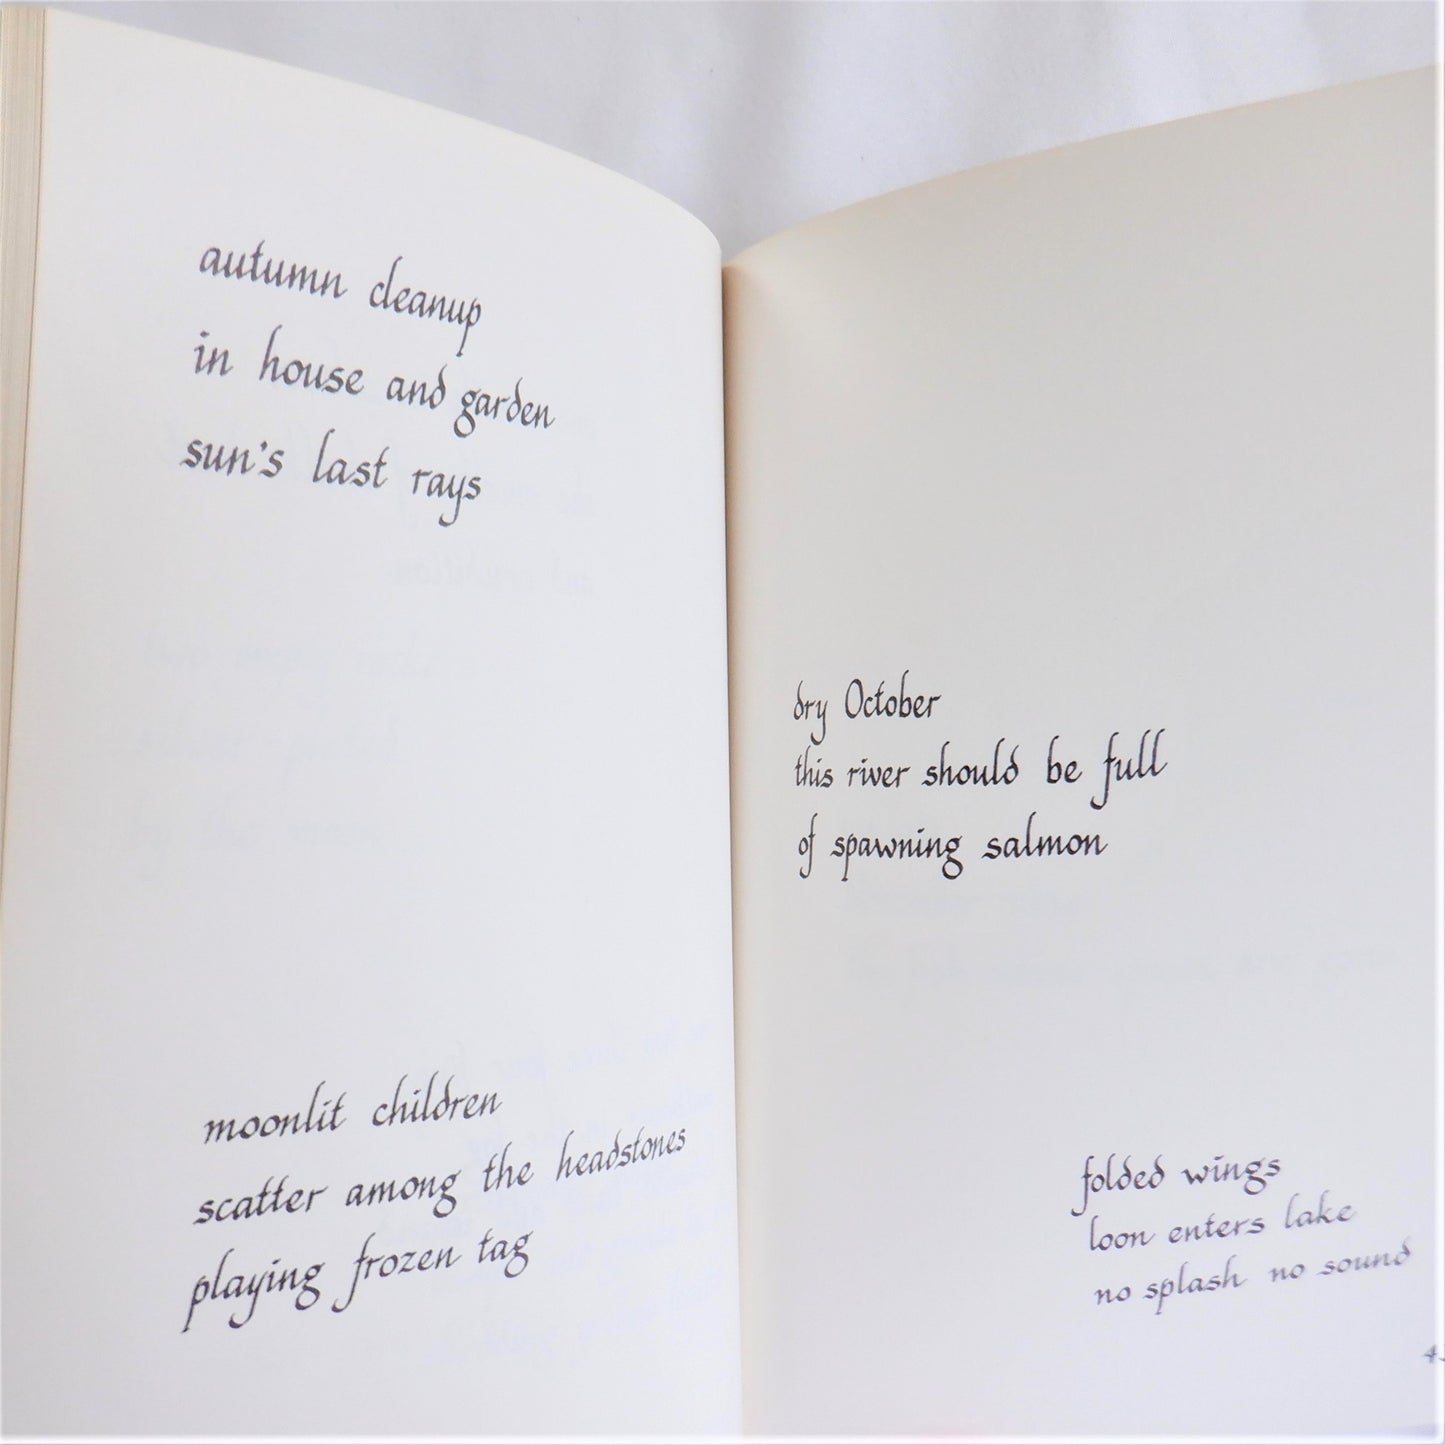 autumn cleanup
in house and garden
sun's last rays
moonlit children
scatter among the headstones
playing frozen tag
dry October
this river should be full
of spawning salmon
folded wings
loon enters lake
no splash no sound